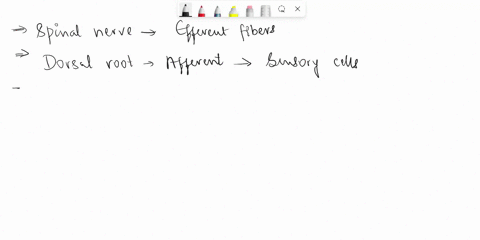 → Spinal nerve → Efferent fibers
⇒ Dorsal root → Afferent → Sensory cells
-